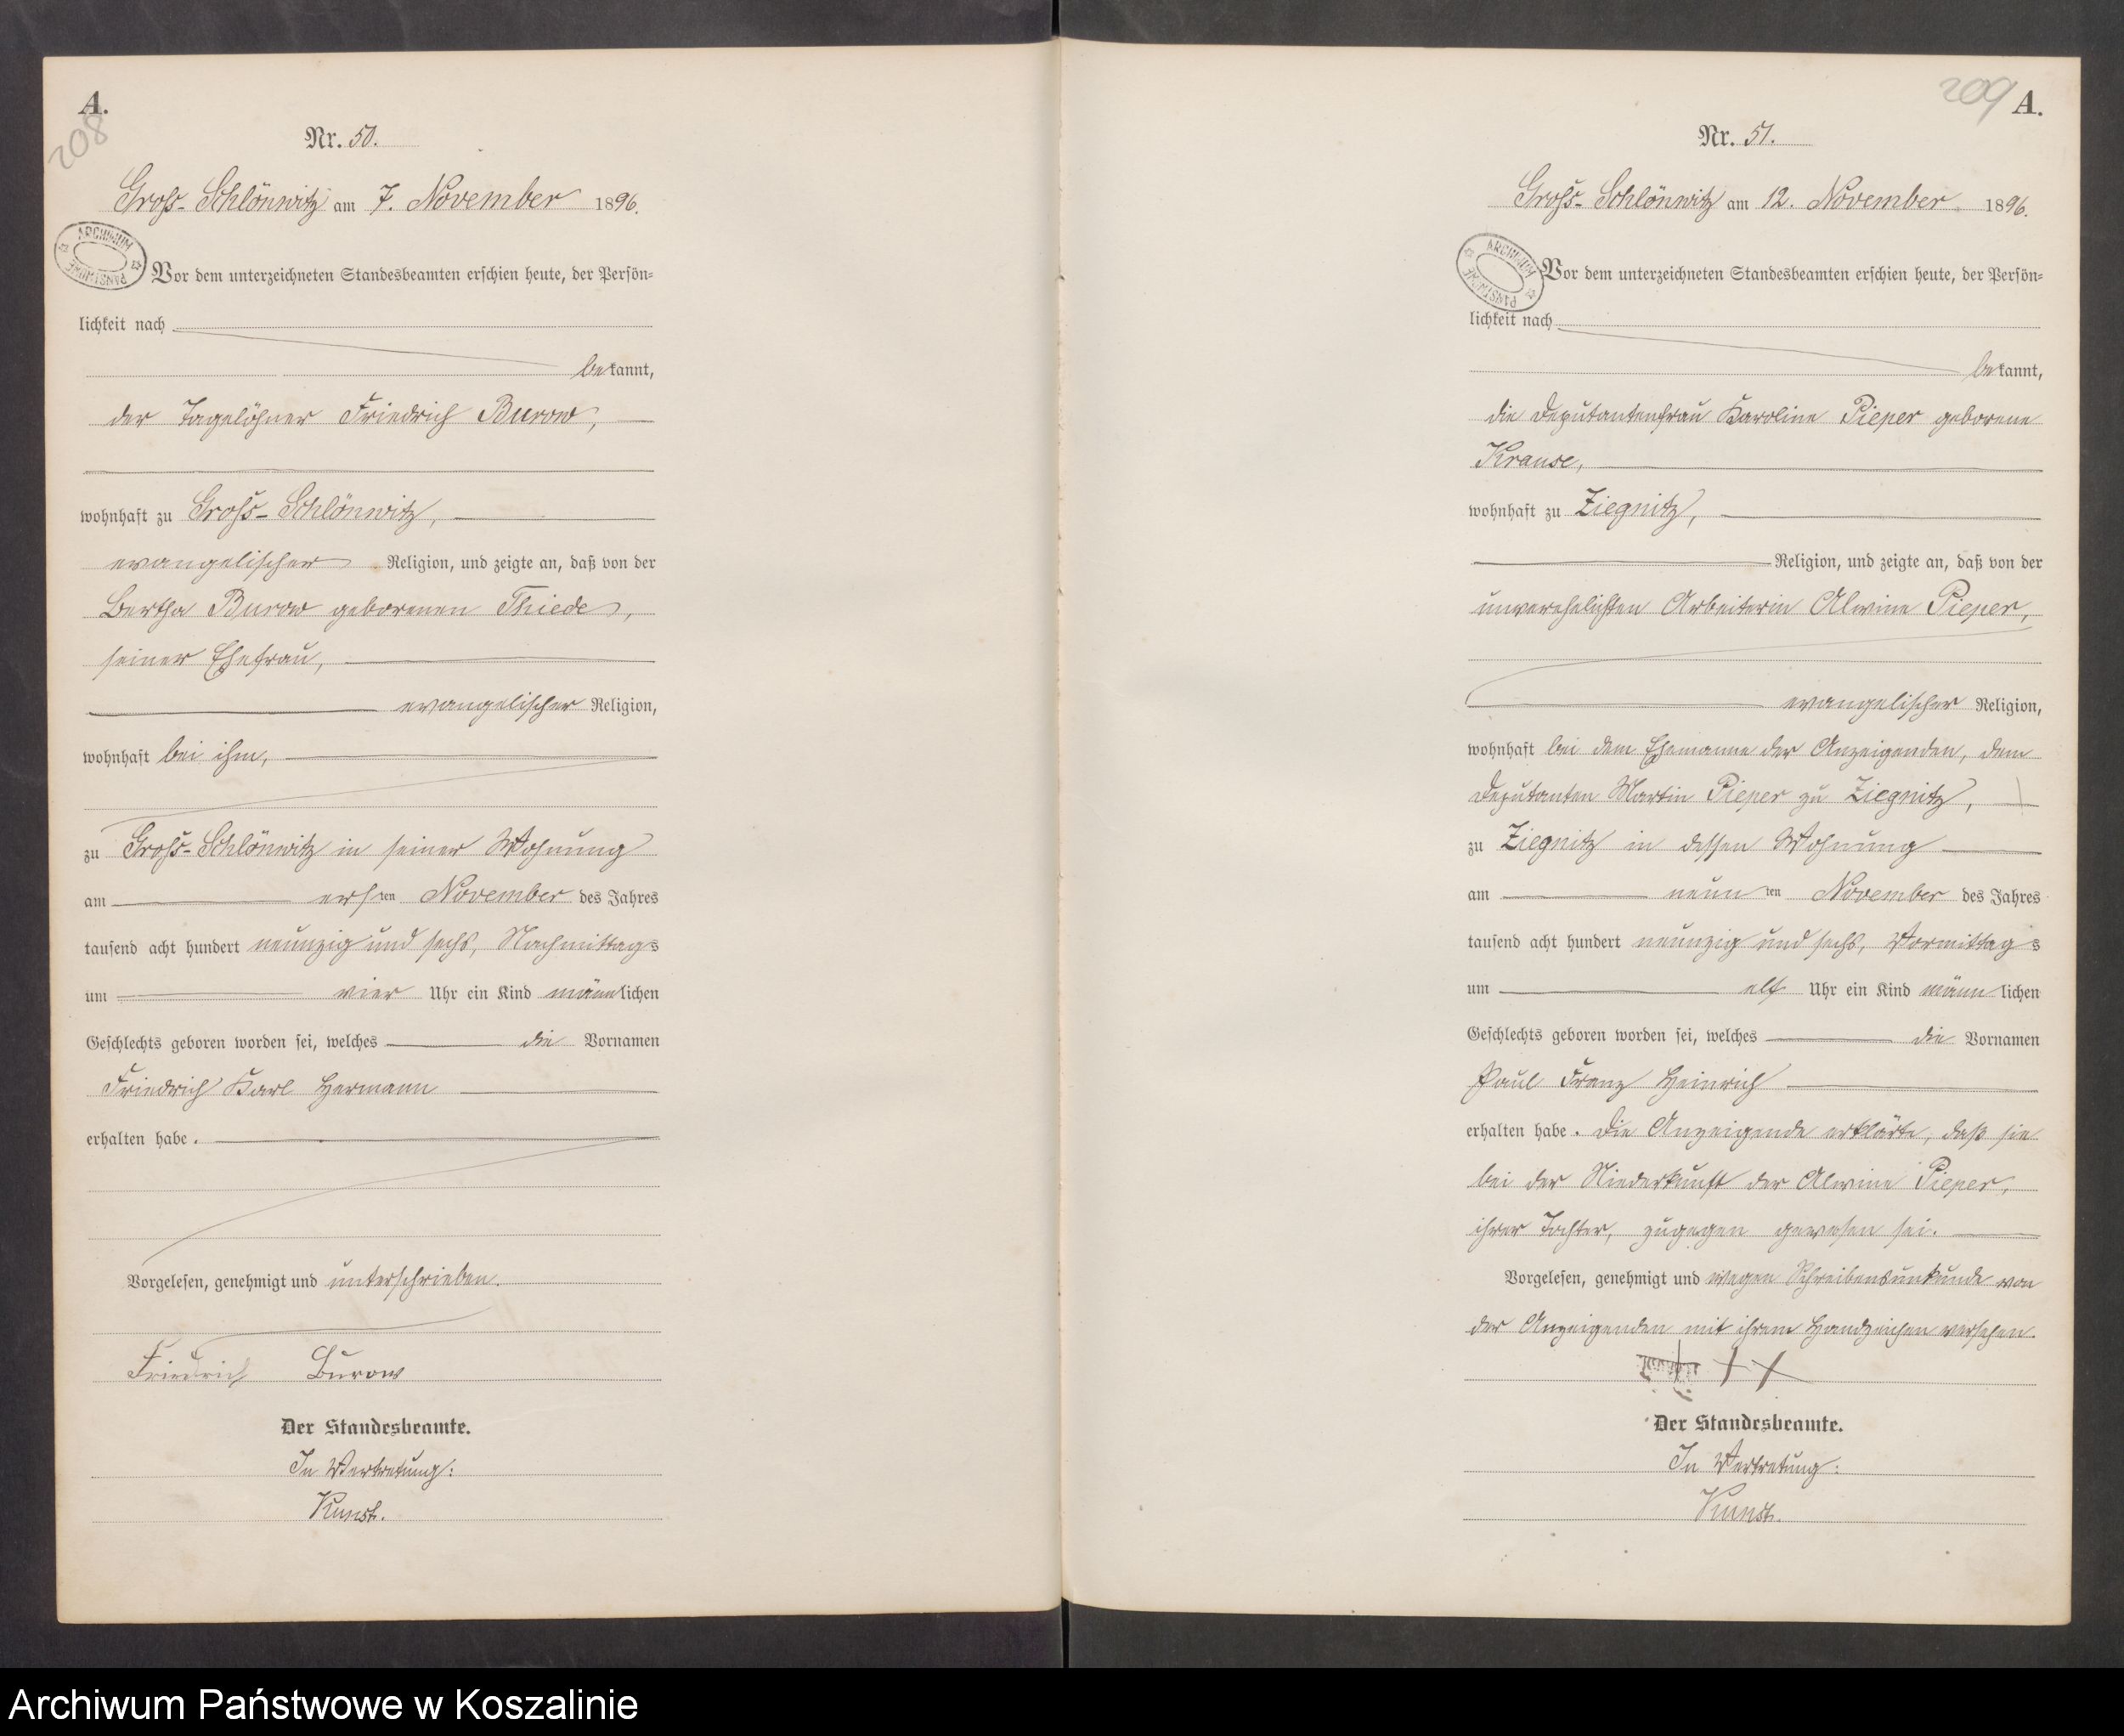 A.
208
Nr. 50.
Groß-Schlönwitz am 7. November 1896.
ARCHIWUM PAŃSTWOWE
Vor dem unterzeichneten Standesbeamten erschien heute, der Persön-
lichkeit nach
bekannt,
der Tagelöhner Friedrich Burow,
wohnhaft zu Groß-Schlönwitz,
evangelischer Religion, und zeigte an, daß von der
Bertha Burow geborenen Thiede,
seiner Ehefrau,
evangelischer Religion,
wohnhaft bei ihm,
zu Groß-Schlönwitz in seiner Wohnung
am ersten November des Jahres
tausend acht hundert neunzig und sechs, Nachmittags
um vier Uhr ein Kind männlichen
Geschlechts geboren worden sei, welches die Vornamen
Friedrich Karl Hermann
erhalten habe.
Vorgelesen, genehmigt und unterschrieben.
Friedrich Burow
Der Standesbeamte.
In Vertretung:
Kunst.
209
A.
Nr. 51.
Groß-Schlönwitz am 12. November 1896.
ARCHIWUM PAŃSTWOWE
Vor dem unterzeichneten Standesbeamten erschien heute, der Persön-
lichkeit nach
bekannt,
die Deputantenfrau Karoline Pieper geborene
Krause,
wohnhaft zu Ziegnitz,
Religion, und zeigte an, daß von der
unverehelichten Arbeiterin Alwine Pieper,
evangelischer Religion,
wohnhaft bei dem Ehemanne der Anzeigenden, dem
Deputanten Martin Pieper zu Ziegnitz,
zu Ziegnitz in dessen Wohnung
am neunten November des Jahres
tausend acht hundert neunzig und sechs, Vormittags
um elf Uhr ein Kind männlichen
Geschlechts geboren worden sei, welches die Vornamen
Paul Franz Heinrich
erhalten habe. Die Anzeigende erklärte, daß sie
bei der Niederkunft der Alwine Pieper,
ihrer Tochter, zugegen gewesen sei.
Vorgelesen, genehmigt und wegen Schreibensunkunde von
der Anzeigenden mit ihrem Handzeichen versehen.
+++
Der Standesbeamte.
In Vertretung:
Kunst.
Archiwum Państwowe w Koszalinie